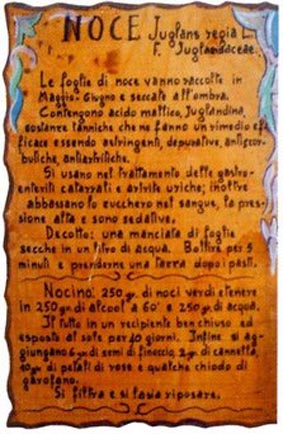 NOCE Juglans regia L.
F. Juglandaceae.
Le foglie di noce vanno raccolte in
Maggio-Giugno e seccate all'ombra.
Contengono acido mattico, Juglandina,
sostanze tanniche che ne fanno un rimedio ef=
ficace essendo astringenti, depurative, antiscor=
butiche, antiartritiche.
Si usano nel trattamento delle gastro-
enteriti catarrali e artrite uriche; inoltre
abbassano lo zucchero nel sangue, la pres=
sione alta e sono sedative.
Decotto: una manciata di foglie
secche in un litro di acqua. Bollire per 5
minuti e prenderne una tazza dopo i pasti.
Nocino: 250 gr. di noci verdi e tenere
in 250 gr. di alcool a 60° e 250 gr. di acqua.
Il tutto in un recipiente ben chiuso ed
esposto al sole per 40 giorni. Infine si ag=
giungano 6 gr. di semi di finocchio, 2 gr. di cannella,
10 gr. di petali di rose e qualche chiodo di
garofano.
Si filtra e si lascia riposare.